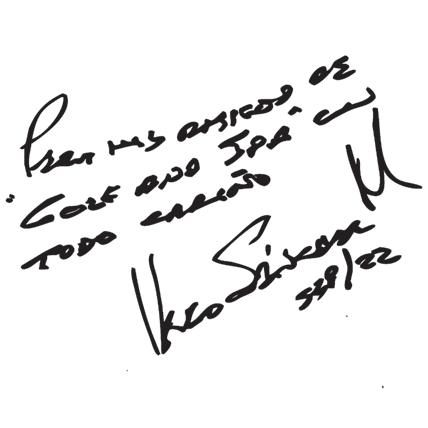 Para mis amigos de
"Golf and Spa" con
todo cariño
Sep/22